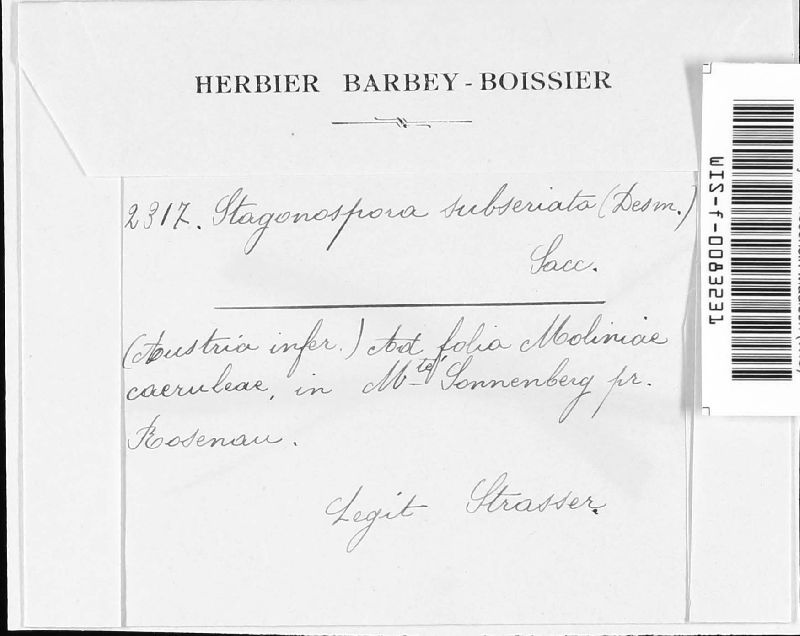 HERBIER BARBEY-BOISSIER
2317. Stagonospora subseriata (Desm.)
Sacc.
(Austria infer.) Ad folia Moliniae
caeruleae, in Mte Sonnenberg pr.
Rosenau.
Legit Strasser.
WIS-f-0083231